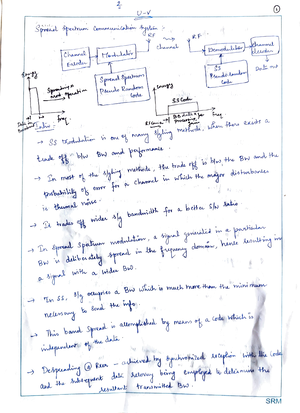 U-V
1
Spread Spectrum Communication System :-
RF
RF
Channel
Channel Encoder
Modulator
Demodulator
Channel decoder
Spread Spectrum Pseudo Random Code
SS Pseudo Random Code
Data out
Energy
Spreading operation
Energy
SS Code
freq
freq
→ SS Modulation is one of many styling methods, when there exist a
trade off b/w BW and performance.
→ In most of the styling methods, the trade off is b/w the BW and the
probability of error for a channel in which the major disturbance
is thermal noise.
→ It trades off wider s/g bandwidth for a better S/N ratio
→ In spread spectrum modulation, a signal generated in a particular
BW is deliberately spread in the frequency domain, hence resulting in
a signal with a wider BW.
→ In SS, s/g occupies a BW which is much more than the minimum
necessary to send the info.
→ This band spread is accomplished by means of a code which is
independent of the data
→ Despreading @ Rxer - achieved by synchronized reception with the code
and the subsequent data recovery being employed to determine the
resultant transmitted BW.
SRM